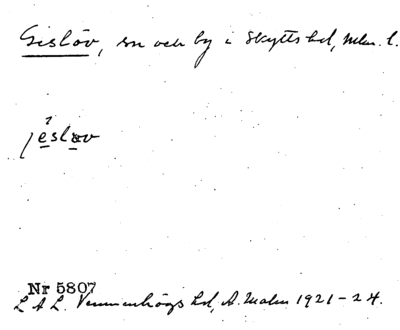 Gislöv, sn och by i Skytts hd, Mlm. l.
jeslav
Nr 5807
L A L. Vemmenhögs hd, A. Malm 1921-24.